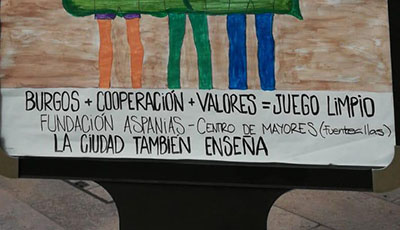 BURGOS + COOPERACIÓN + VALORES = JUEGO LIMPIO
FUNDACIÓN ASPANIAS - CENTRO DE MAYORES (fuentecillas)
LA CIUDAD TAMBIEN ENSEÑA